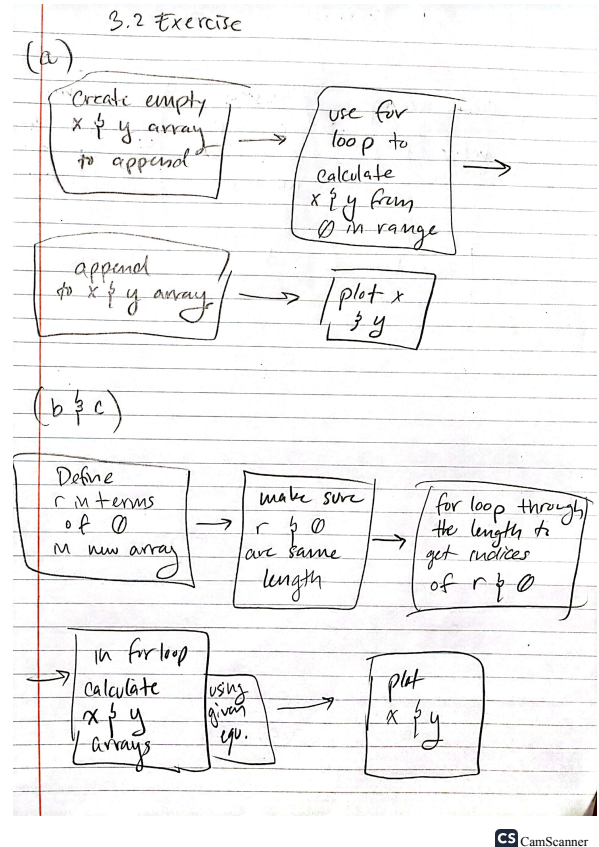 3.2 Exercise
(a)
Create empty
x & y array
to append
use for
loop to
calculate
x & y from
θ in range
append
to x & y array
plot x
& y
(b & c)
Define
r in terms
of θ
in new array
make sure
r & θ
are same
length
for loop through
the length to
get indices
of r & θ
in for loop
calculate
x & y
arrays
using
given
equ.
plot
x & y
CS CamScanner